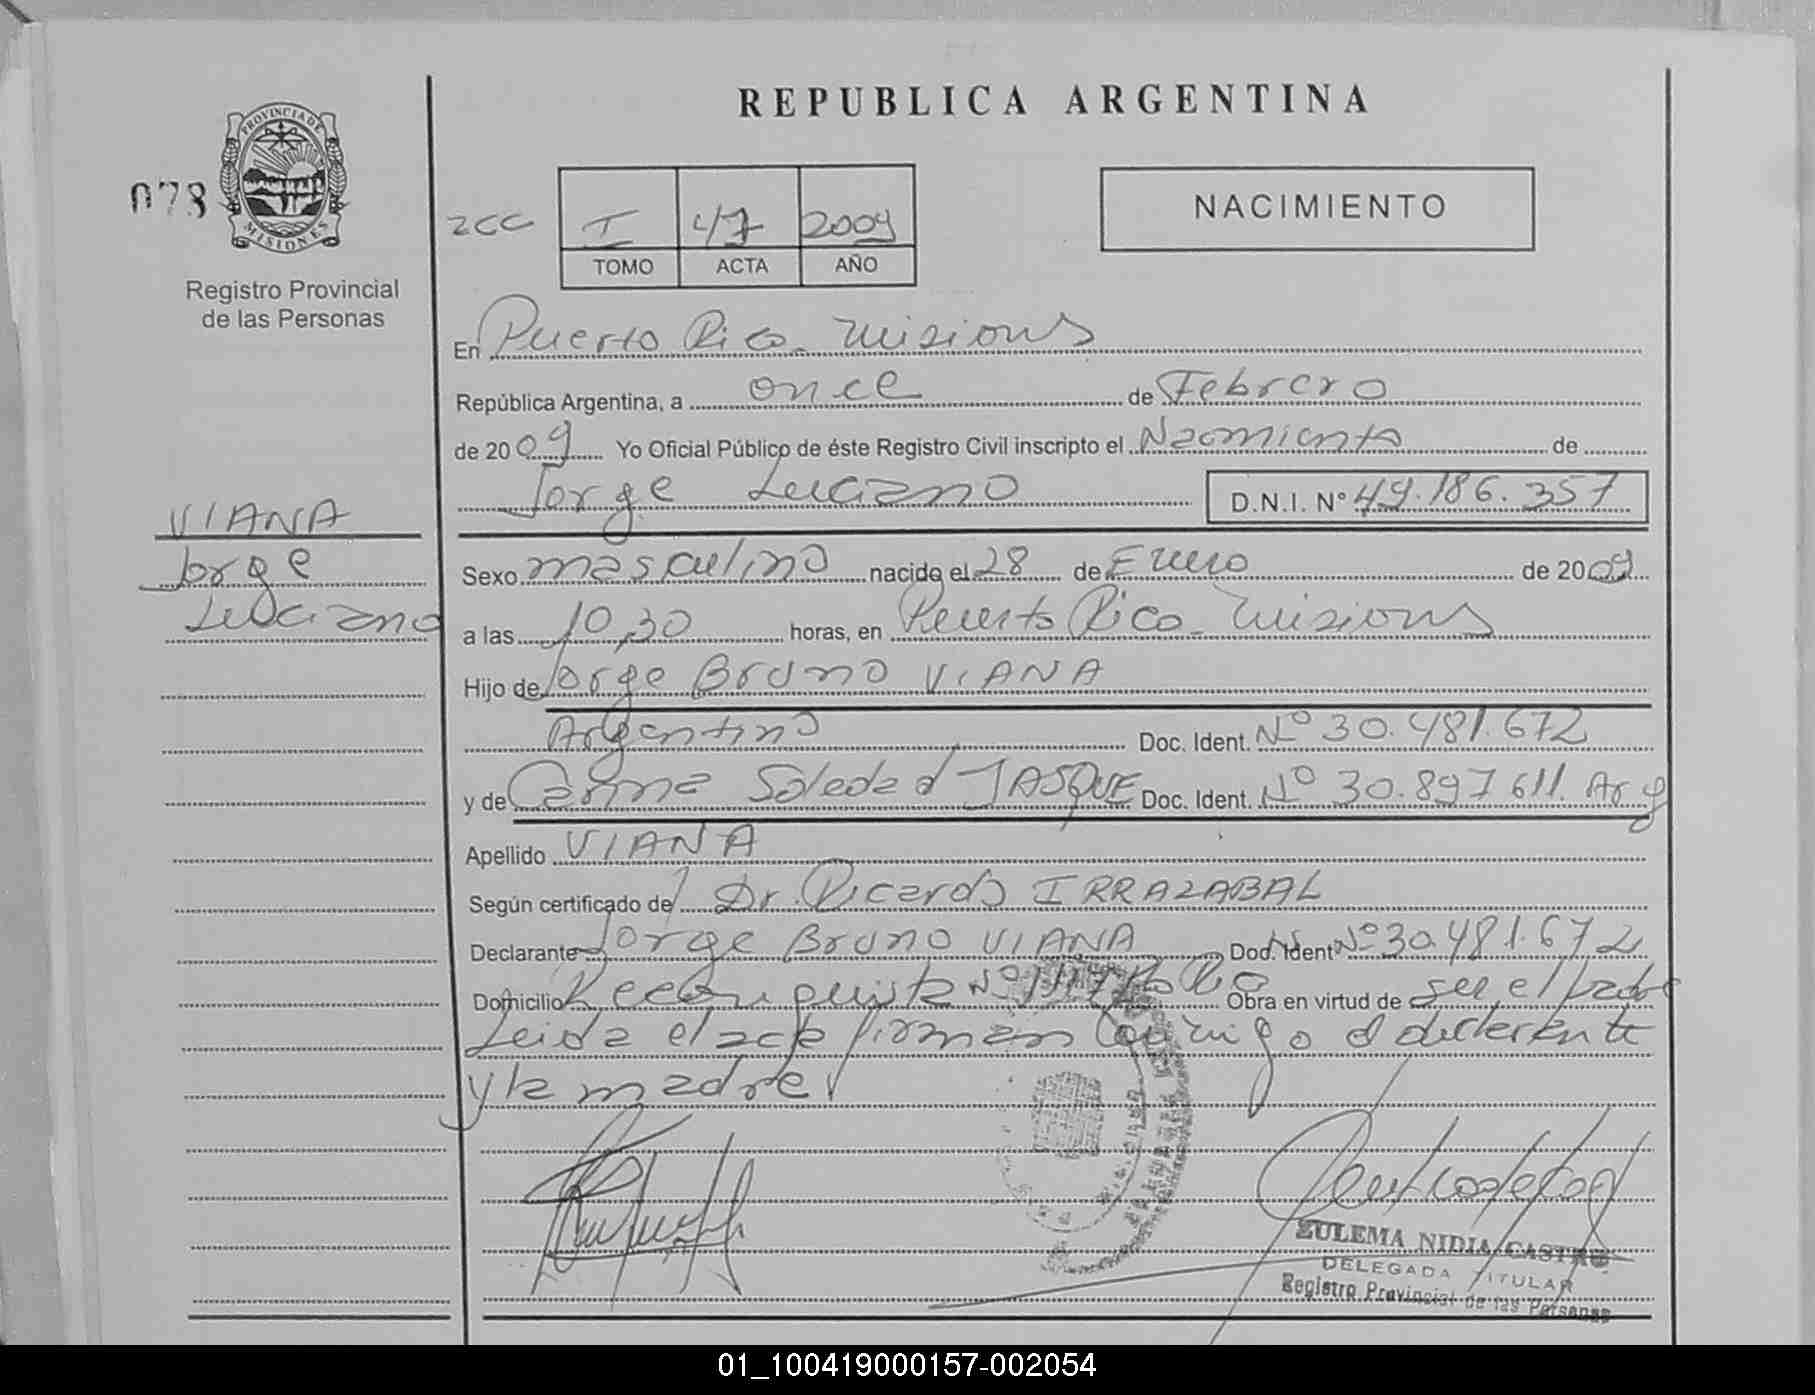 REPUBLICA ARGENTINA
PROVINCIA DE
MISIONES
078
Registro Provincial
de las Personas
2CC I 47 2009
TOMO ACTA AÑO
NACIMIENTO
En Puerto Rico - Misiones
República Argentina, a once de Febrero
de 2009 Yo Oficial Público de éste Registro Civil inscripto el Nacimiento de
Jorge Luciano D.N.I. Nº 49.186.357
VIANA
Jorge
Luciano
Sexo masculino nacido el 28 de Enero de 2009
a las 10,30 horas, en Puerto Rico - Misiones
Hijo de Jorge Bruno VIANA
Argentino Doc. Ident. Nº 30.481.672
y de Soledad JASQUE Doc. Ident. Nº 30.897.611. Arg
Apellido VIANA
Según certificado de Dr. Ricardo IRRAZABAL
Declarante Jorge Bruno VIANA Doc. Ident. Nº 30.481.672
Domicilio Reconquista Nº Pto Rico Obra en virtud de ser el padre
Leida el acta firman conmigo el declarante
y la madre
ZULEMA NIDIA CASTRO
DELEGADA TITULAR
Registro Provincial de las Personas
01_100419000157-002054